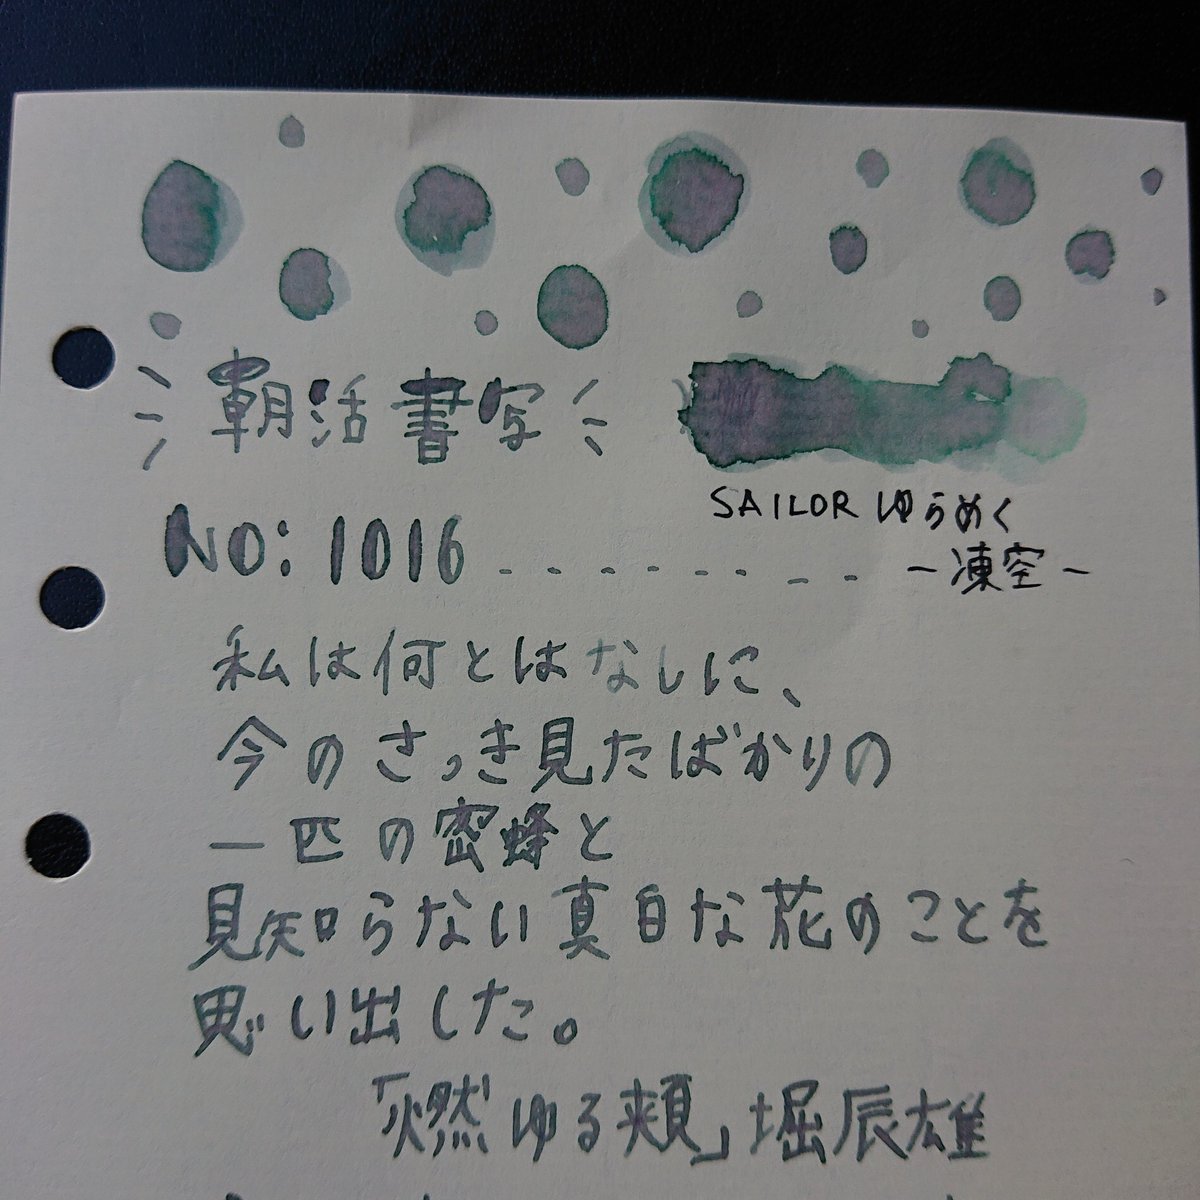 朝活書写
SAILOR ゆらめく
NO: 1016 - - - - - - - - ~凍空~
私は何とはなしに、
今のさっき見たばかりの
一匹の密蜂と
見知らない真白な花のことを
思い出した。
「燃ゆる頬」堀辰雄